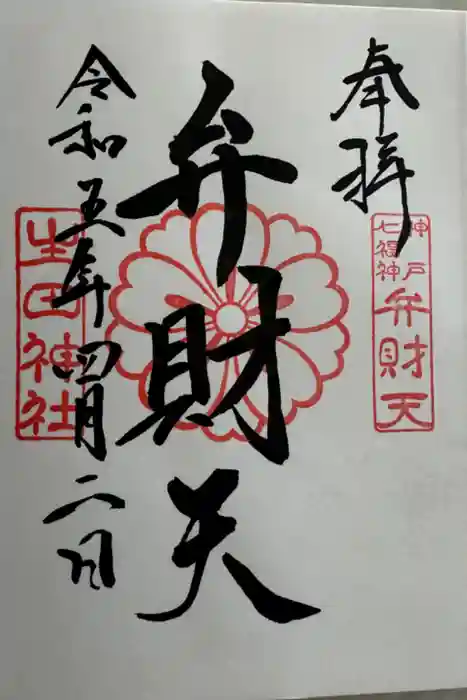 奉拝
神戸
七福神
弁財天
弁財天
令和五年四月二日
生田神社